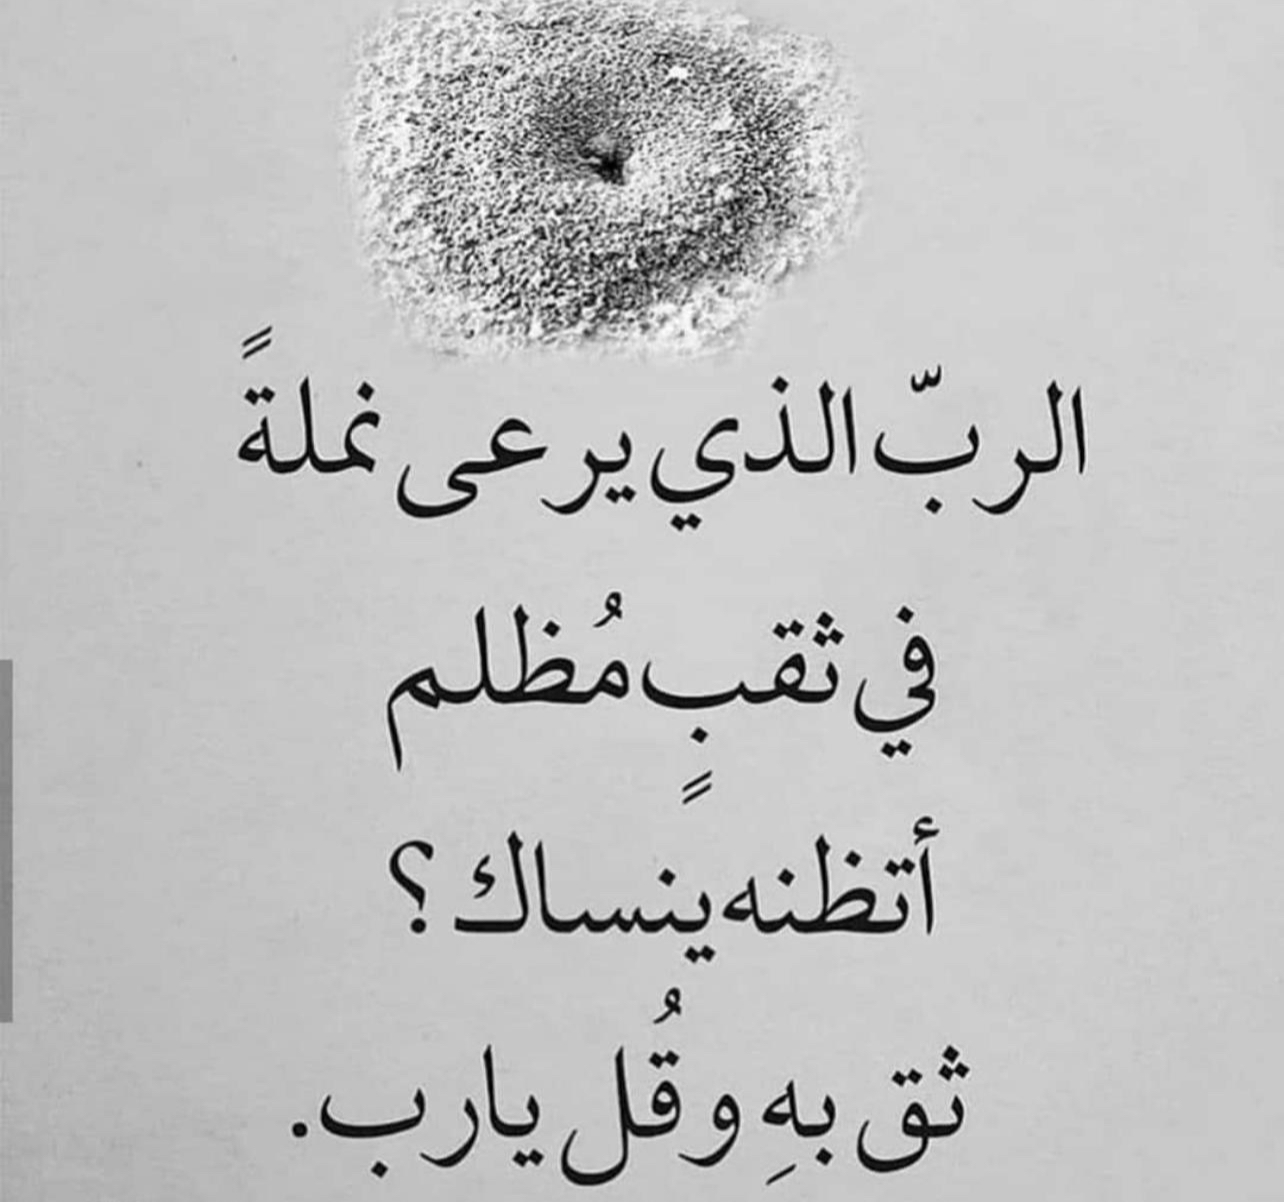 الربّ الذي يرعى نملةً
في ثقبٍ مُظلم
أتظنه ينساك ؟
ثق بهِ وقُل يارب.